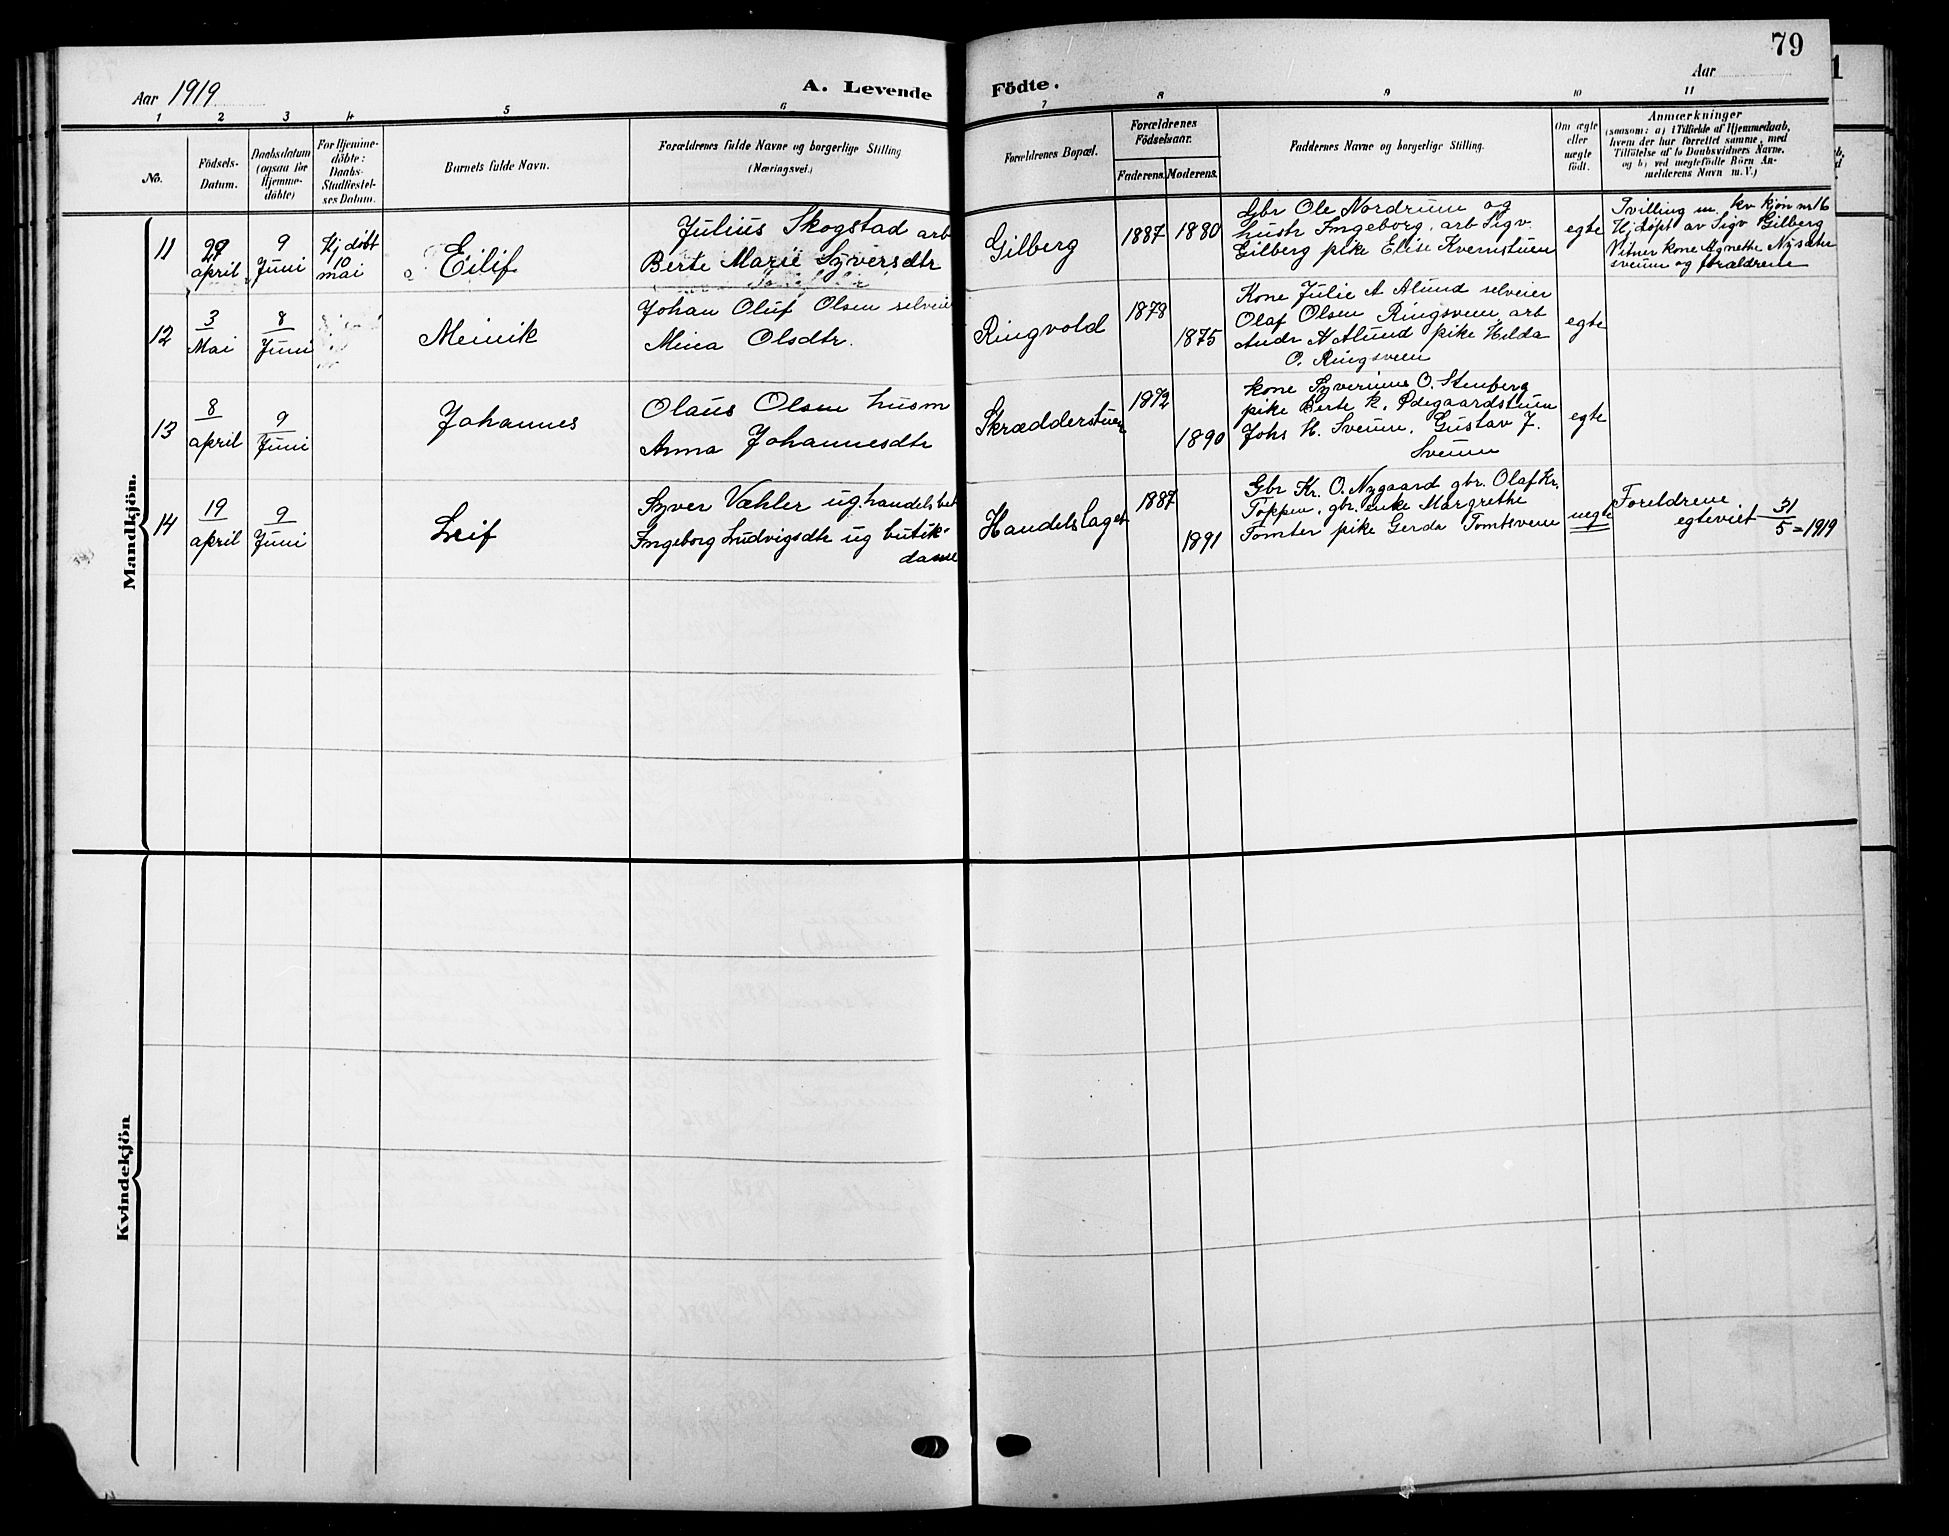 79
Aar 1919
A. Levende Födte.
Aar
1 2 3 4 5 6 7 8 9 10 11
No.
Födsels-Datum.
Daabsdatum (ogsaa for Hjemme-döbte)
For Hjemme-döbte: Daabs-Stadfæstel-ses Datum.
Barnets fulde Navn.
Forældrenes fulde Navne og borgerlige Stilling
(Næringsvei.)
Forældrenes Bopæl.
Forældrenes Födselsaar.
Faderens. Moderens.
Faddernes Navne og borgerlige Stilling.
Om ægte eller uægte födt.
Anmærkninger
(saasom: a) i Tilfælde af Hjemmedaab, hvem der har forrettet samme, med Tilföielse af to Daabsvidners Navne, og b) ved uægtefödte Börn An-melderens Navn m.V.)
Mandkjön.
11 april 9 Juni Hj döbt 10 mai Eilif
Julius Skogstad arb
Berte Marie Syversdtr
Gilberg 1887 1880
Gbr Ole Nordrum og
hustr Ingeborg, arb Sigv.
Gilberg pike Elise Kvernstuen
egte
Tvilling m. kv kjön nr 16
Hj döpt av Sigv Gilberg
Vitner kone Agnethe
og forældrene
12 3 Mai 8 Juni Meinik
Johan Oluf Olsen selveier
Mina Olsdtr.
Ringvold 1878 1875
Kone Julie A Alund selveier
Olaf Olsen Ringsveen, arb
Andr A Alund pike Hilda
O. Ringsveen
egte
13 8 april 9 Juni Johannes
Olaus Olsen husm
Anna Johannesdtr
Skrædderstuen 1872 1890
kone Syverine O. Stenberg
pike Berte K. Ødegaardstuen
Johs H. Sveum, Gustav J.
Sveum
egte
14 19 april 9 Juni Leif
Syver Væhler ug. handelsbet
Ingeborg Ludvigsdtr ug butik-
dame
Handelslaget 1887 1891
Gbr Kr. O. Nygaard gbr. Olaf Kr.
Toppen, gbr. enke Margrethe
Tomter pike Gerda Tomtsveen
uegte
Foreldrene
egteviet 31/5 = 1919
Kvindekjön